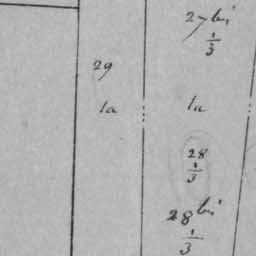 27 bis
1/3
29
1a
1a
28
1/3
28 bis
1/3